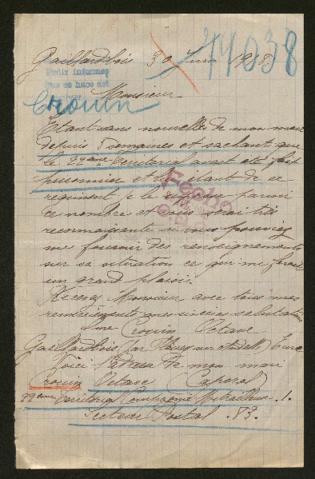 Gaillardbois 30 Juin 1918
44038
Crouin
Monsieur
Etant sans nouvelles de mon mari
depuis 5 semaines et sachant que
le 29ème territorial avait été fait
prisonnier et lui étant de ce
regiment je le suppose parmi
ce nombre et vous serait très
reconnaissante si vous pouviez
me fournir des renseignements
sur sa situation ce qui me ferait
un grand plaisir.
Recevez Monsieur avec tous mes
remerciements mes sincères salutations
Mme Crouin Octave
Gaillardbois par Eure
Voici l'adresse de mon mari
Crouin Octave Caporal
29ème territorial Compagnie Mitrailleuse 1.
Secteur Postal .83.